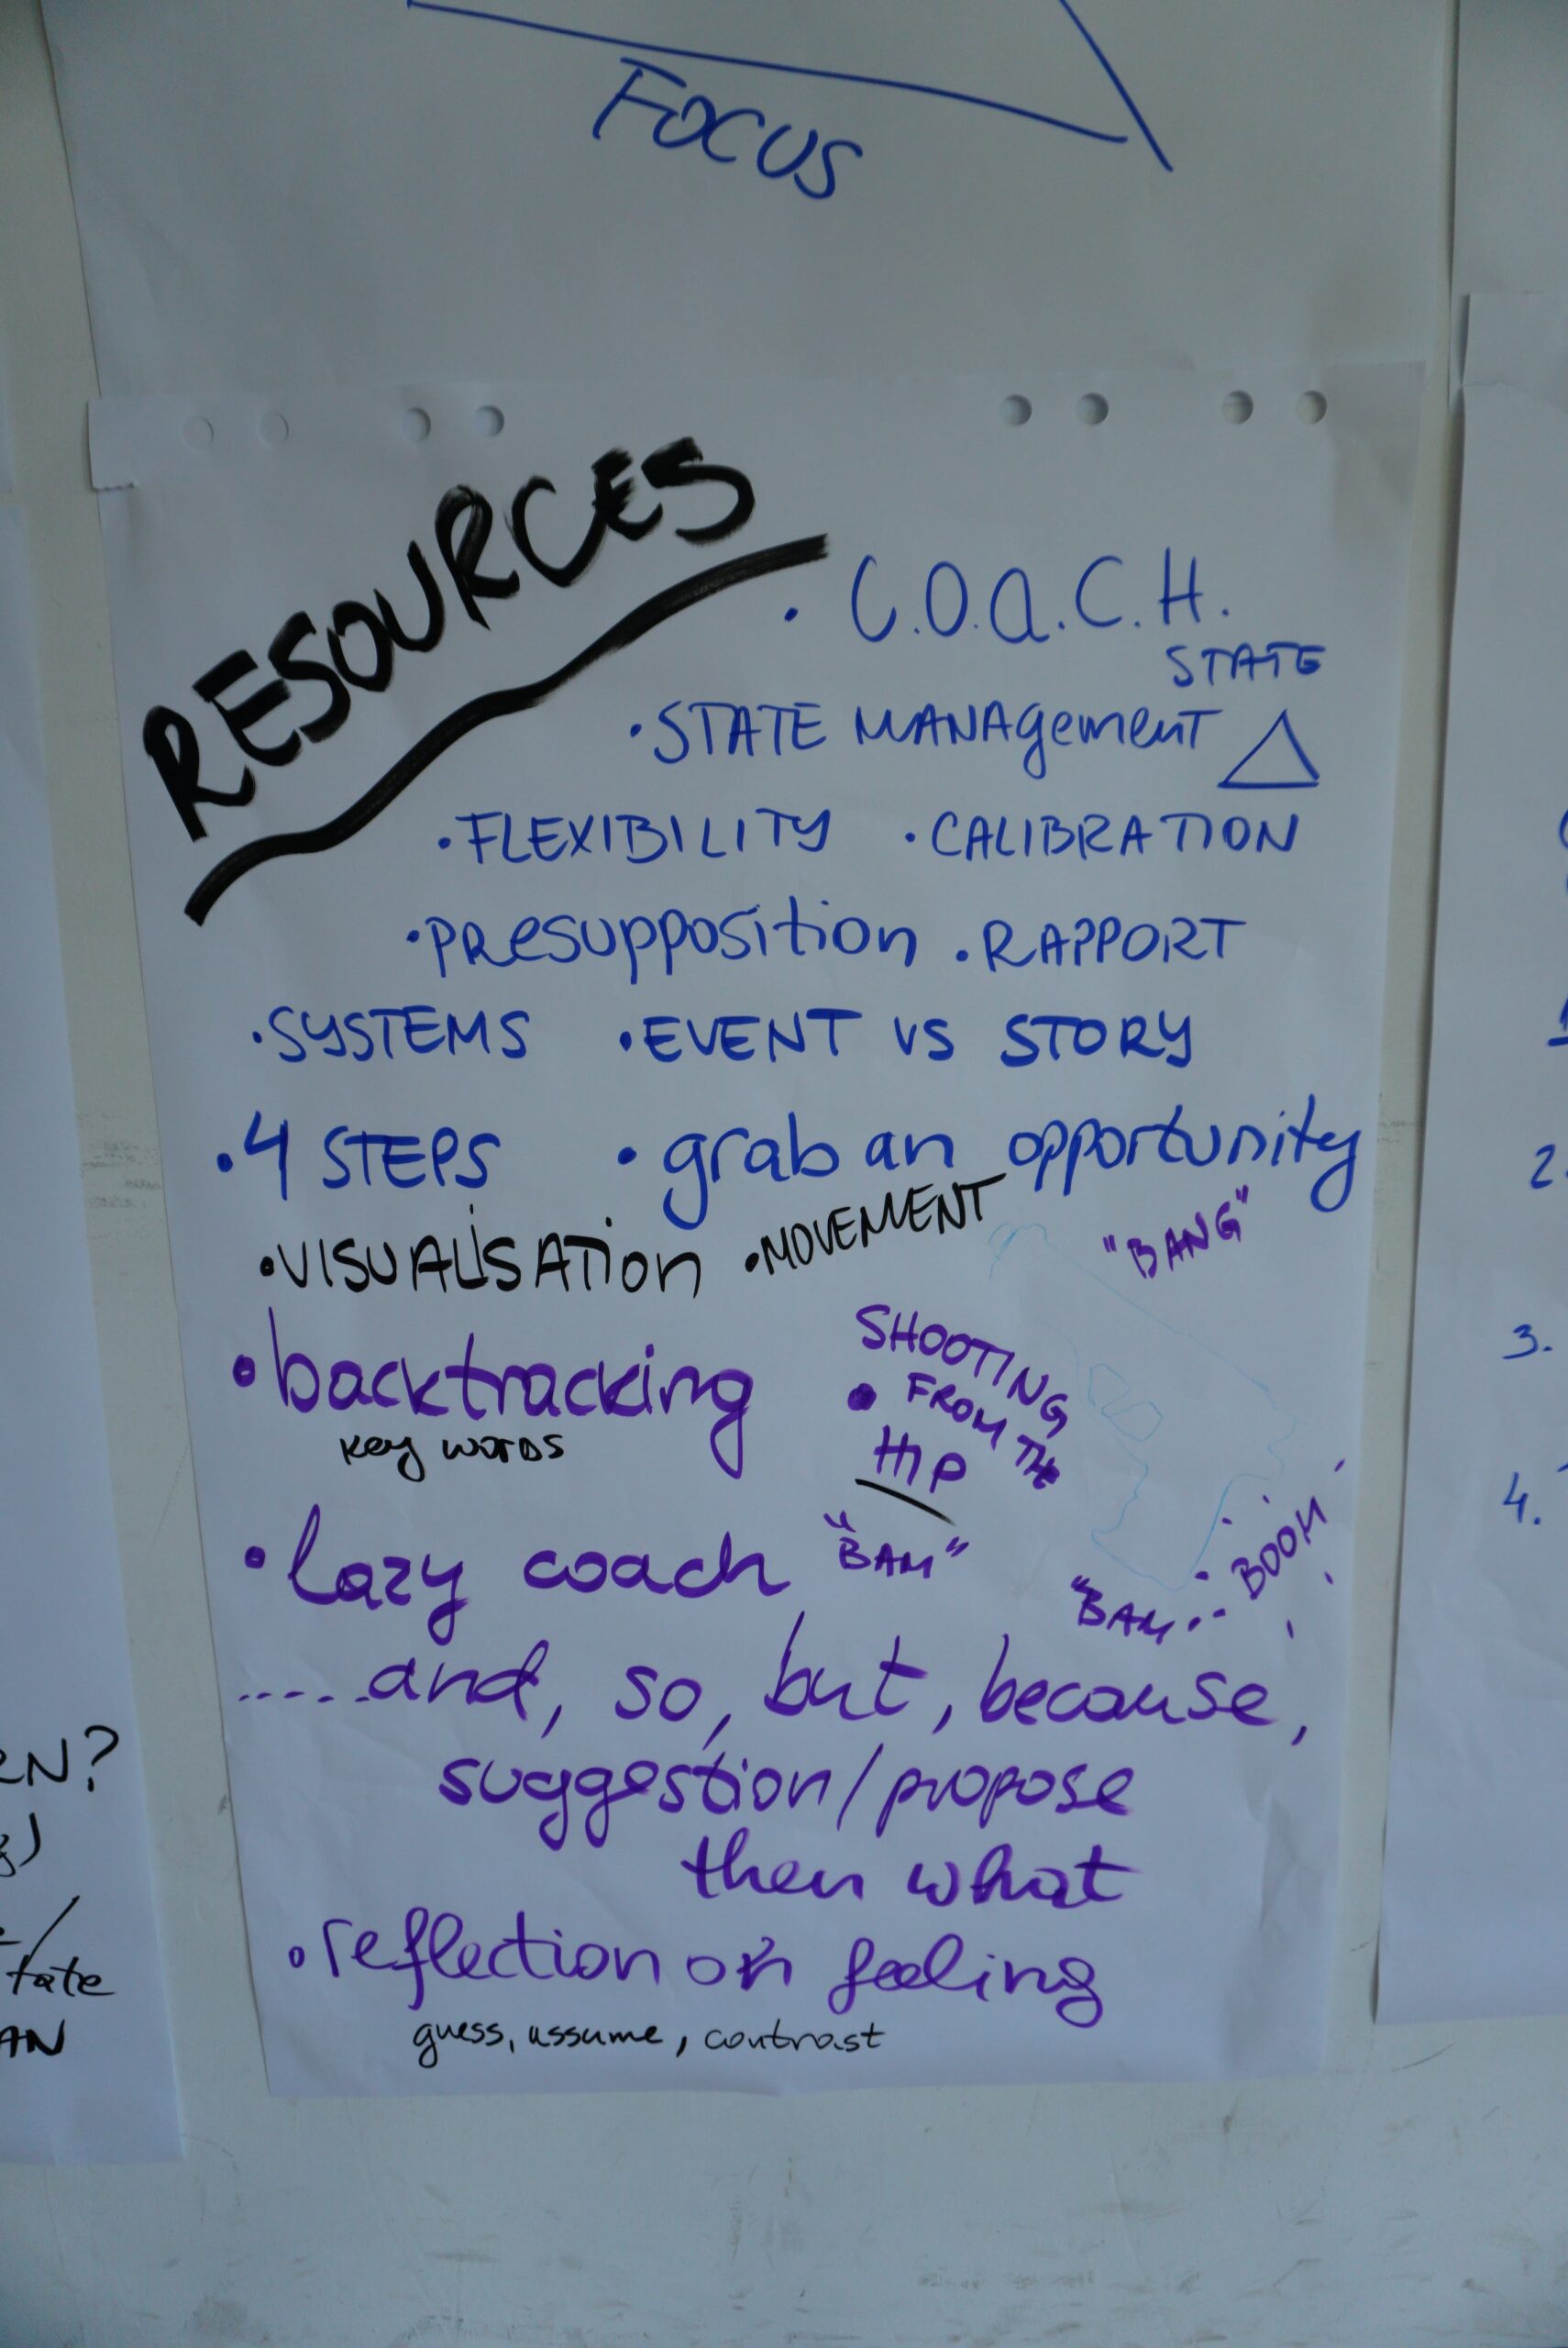 FOCUS
RESOURCES
• C.O.A.C.H.
STATE
• STATE MANAgement
• FLEXIBILITY • CALIBRATION
• PResupposition • RAPPORT
• SYSTEMS • EVENT VS STORY
• 4 STEPS • grab an opportunity
• VISUALiSATion • MOVEMENT
"BANG"
• backtracking
key words
• SHOOTING
FROM THE
HIP
• lazy coach
"BAM"
"BAM... BOOM
.....and, so, but, because,
suggestion/propose
then what
• reflection on feeling
guess, assume, contrast
tate
AN
2.
3.
4.